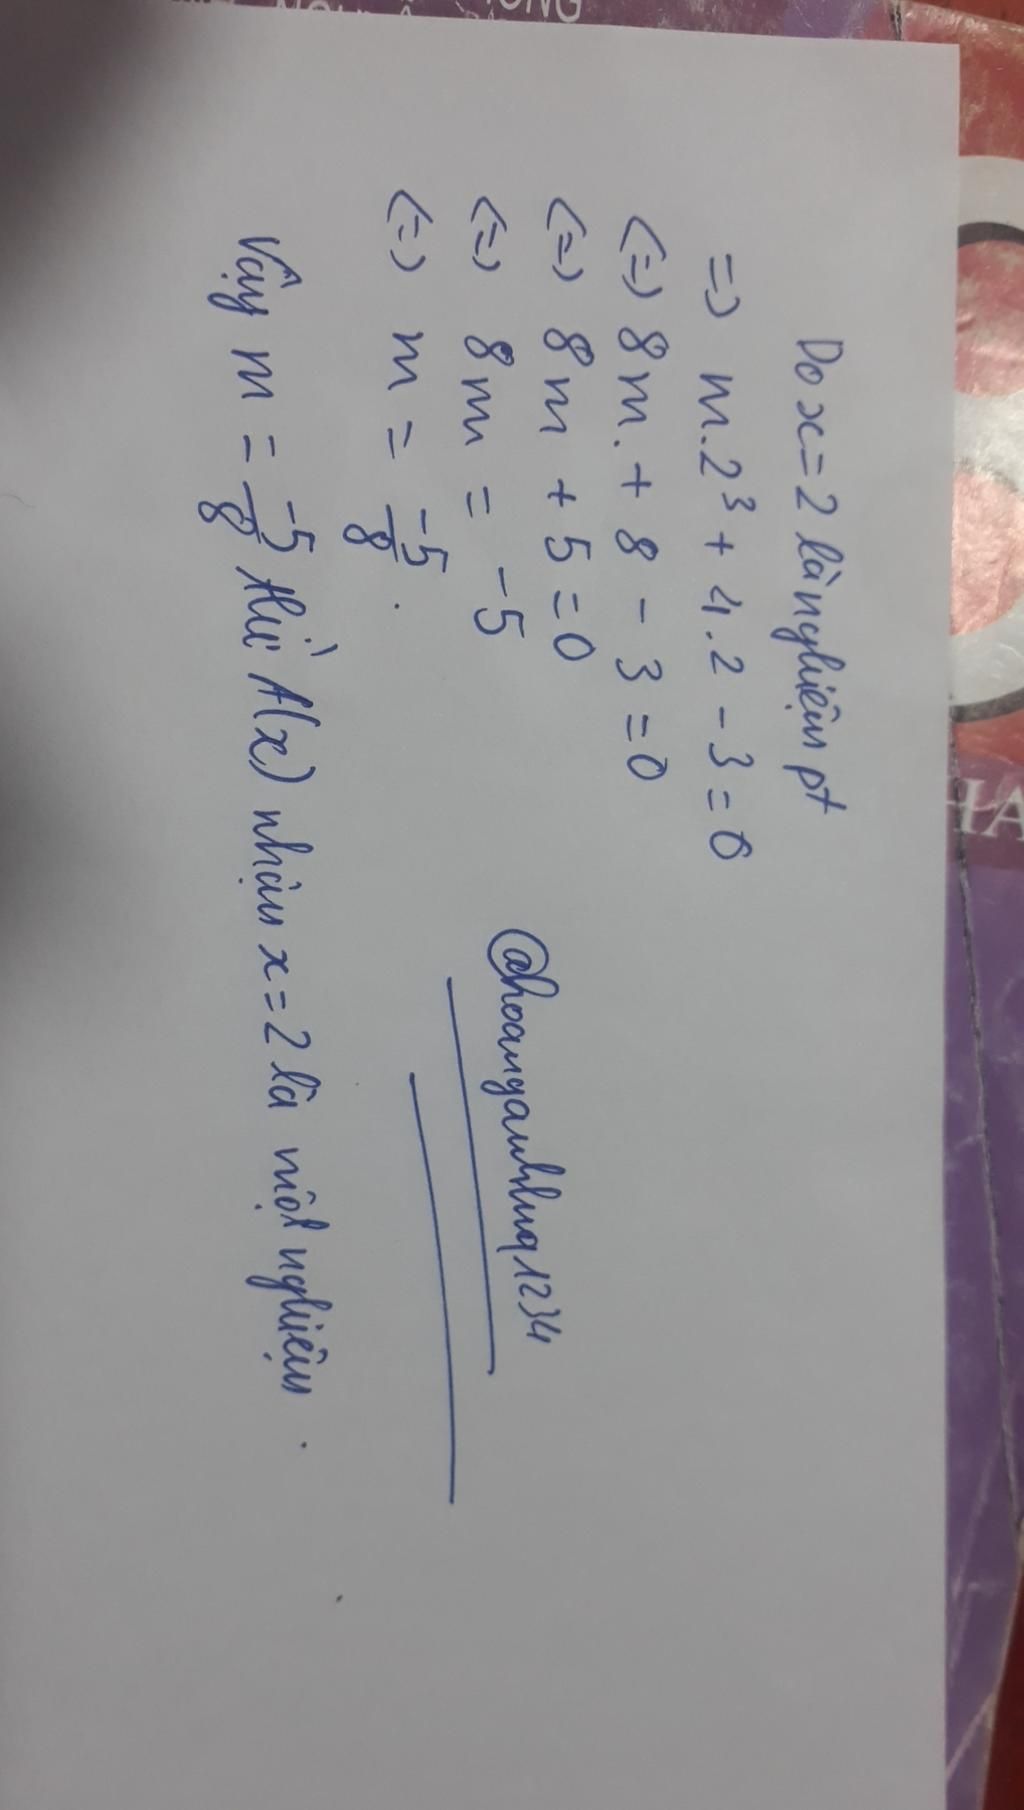 Do x = 2 là nghiệm pt
=> m.2³ + 4.2 - 3 = 0
<=> 8m. + 8 - 3 = 0
<=> 8m + 5 = 0
<=> 8m = -5
<=> m = -5/8.
@hoanganhhuq1234
Vậy m = -5/8 thì A(x) nhận x = 2 là một nghiệm.
ONG
HA